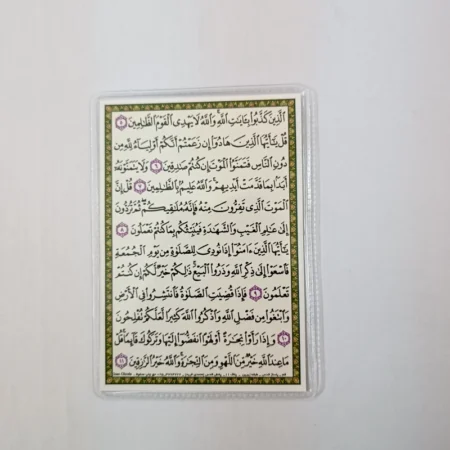 الَّذِينَ كَذَّبُوا بِآيَاتِ اللَّهِ وَاللَّهُ لَا يَهْدِي الْقَوْمَ الظَّالِمِينَ ٥
قُلْ يَا أَيُّهَا الَّذِينَ هَادُوا إِن زَعَمْتُمْ أَنَّكُمْ أَوْلِيَاءُ لِلَّهِ مِن
دُونِ النَّاسِ فَتَمَنَّوُا الْمَوْتَ إِن كُنتُمْ صَادِقِينَ ٦ وَلَا يَتَمَنَّوْنَهُ
أَبَدًا بِمَا قَدَّمَتْ أَيْدِيهِمْ وَاللَّهُ عَلِيمٌ بِالظَّالِمِينَ ٧ قُلْ إِنَّ
الْمَوْتَ الَّذِي تَفِرُّونَ مِنْهُ فَإِنَّهُ مُلَاقِيكُمْ ثُمَّ تُرَدُّونَ
إِلَىٰ عَالِمِ الْغَيْبِ وَالشَّهَادَةِ فَيُنَبِّئُكُم بِمَا كُنتُمْ تَعْمَلُونَ ٨
يَا أَيُّهَا الَّذِينَ آمَنُوا إِذَا نُودِيَ لِلصَّلَاةِ مِن يَوْمِ الْجُمُعَةِ
فَاسْعَوْا إِلَىٰ ذِكْرِ اللَّهِ وَذَرُوا الْبَيْعَ ذَٰلِكُمْ خَيْرٌ لَّكُمْ إِن كُنتُمْ
تَعْلَمُونَ ٩ فَإِذَا قُضِيَتِ الصَّلَاةُ فَانتَشِرُوا فِي الْأَرْضِ
وَابْتَغُوا مِن فَضْلِ اللَّهِ وَاذْكُرُوا اللَّهَ كَثِيرًا لَّعَلَّكُمْ تُفْلِحُونَ
١٠ وَإِذَا رَأَوْا تِجَارَةً أَوْ لَهْوًا انفَضُّوا إِلَيْهَا وَتَرَكُوكَ قَائِمًا قُلْ
مَا عِندَ اللَّهِ خَيْرٌ مِّنَ اللَّهْوِ وَمِنَ التِّجَارَةِ وَاللَّهُ خَيْرُ الرَّازِقِينَ ١١